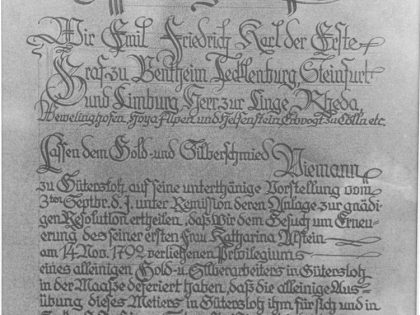 Wir Emil Friedrich Karl der Erste
Graf zu Bentheim Tecklenburg, Steinfurt
und Limburg Herr zur Linge, Rheda,
Wewelinghofen, Hoya, Alpen und Helfenstein, Erbvogt zu Cölln etc.
Lassen dem Gold- und Silberschmied Niemann
zu Gütersloh, auf seine unterthänige Vorstellung vom
3ten Septbr. d. J. unter Remission deren Anlage zur gnädi-
gen Resolution ertheilen, daß Wir dem Gesuch um Erneu-
erung des seiner ersten Frau Katharina
am 14. Nov. 1792 verliehenen Privilegiums
eines alleinigen Gold- u. Silberarbeiters in Gütersloh
in der Maaße deferiert haben, daß die alleinige Aus-
übung dieses Metiers in Gütersloh ihm für sich und in